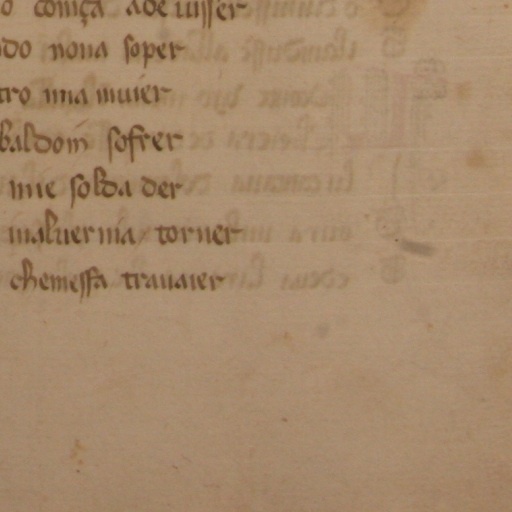 o comça adeuisser
do noua soper
tro una muier
baldoin sofrer
mie solda der
maluerma torner
chemessa trauaier